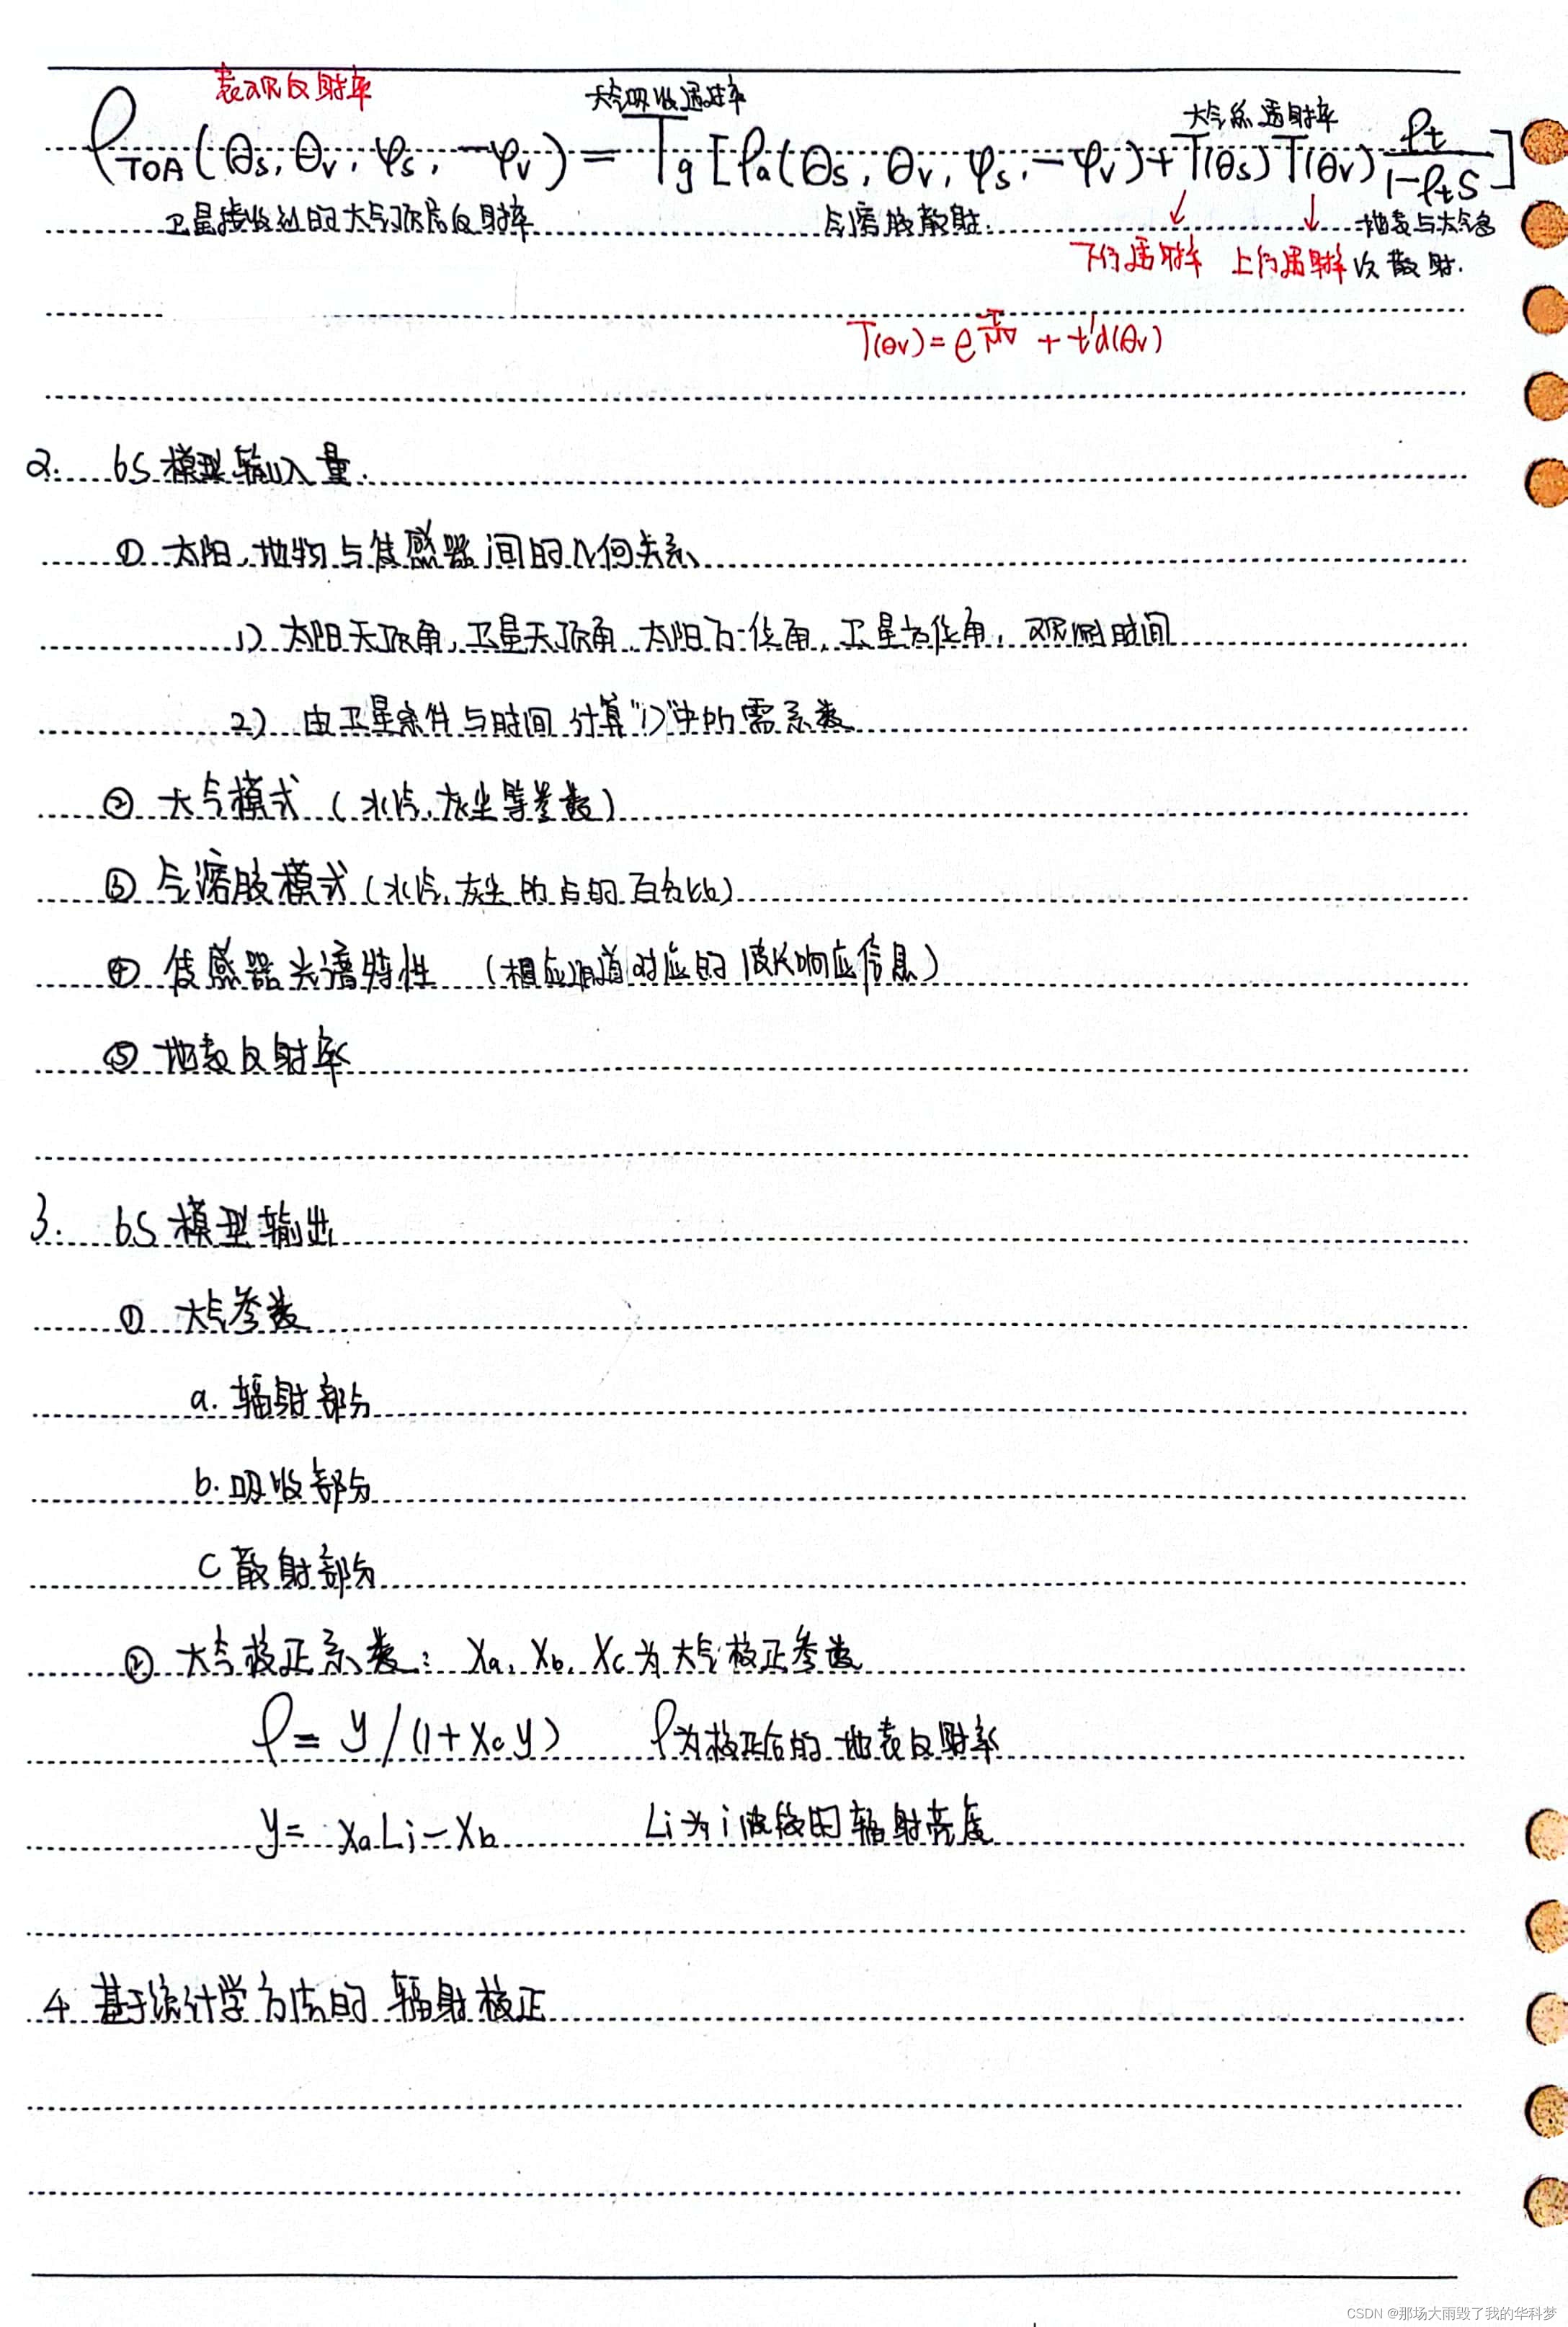 表观反射率 大气吸收透射率 大气总透射率
ρTOA(θs, θv, φs, -φv) = Tg[ρa(θs, θv, φs, -φv) + T(θs)T(θv) ρt/(1-ρtS)]
卫星接收到的大气顶层反射率 气溶胶散射. 地表与大气多
下行透射率 上行透射率 次散射.
T(θv) = e^(-τ/μv) + t'd(θv)
2. 6S模型输入量.
① 太阳,地物与传感器间的几何关系
1) 太阳天顶角,卫星天顶角,太阳方位角,卫星方位角,观测时间
2) 由卫星条件与时间计算"1)"中所需系数
② 大气模式 (水汽,灰尘等参数)
③ 气溶胶模式 (水汽,灰尘所占的百分比)
④ 传感器光谱特性 (相应通道对应的波长响应信息)
⑤ 地表反射率
3. 6S模型输出
① 大气参数
a. 辐射部分
b. 吸收部分
c 散射部分
② 大气校正系数: Xa, Xb, Xc为大气校正参数
ρ = y/(1+Xc y) ρ为校正后的地表反射率
y = XaLi-Xb Li为i波段的辐射亮度
4 基于统计学方法的辐射校正
CSDN @那场大雨毁了我的华科梦